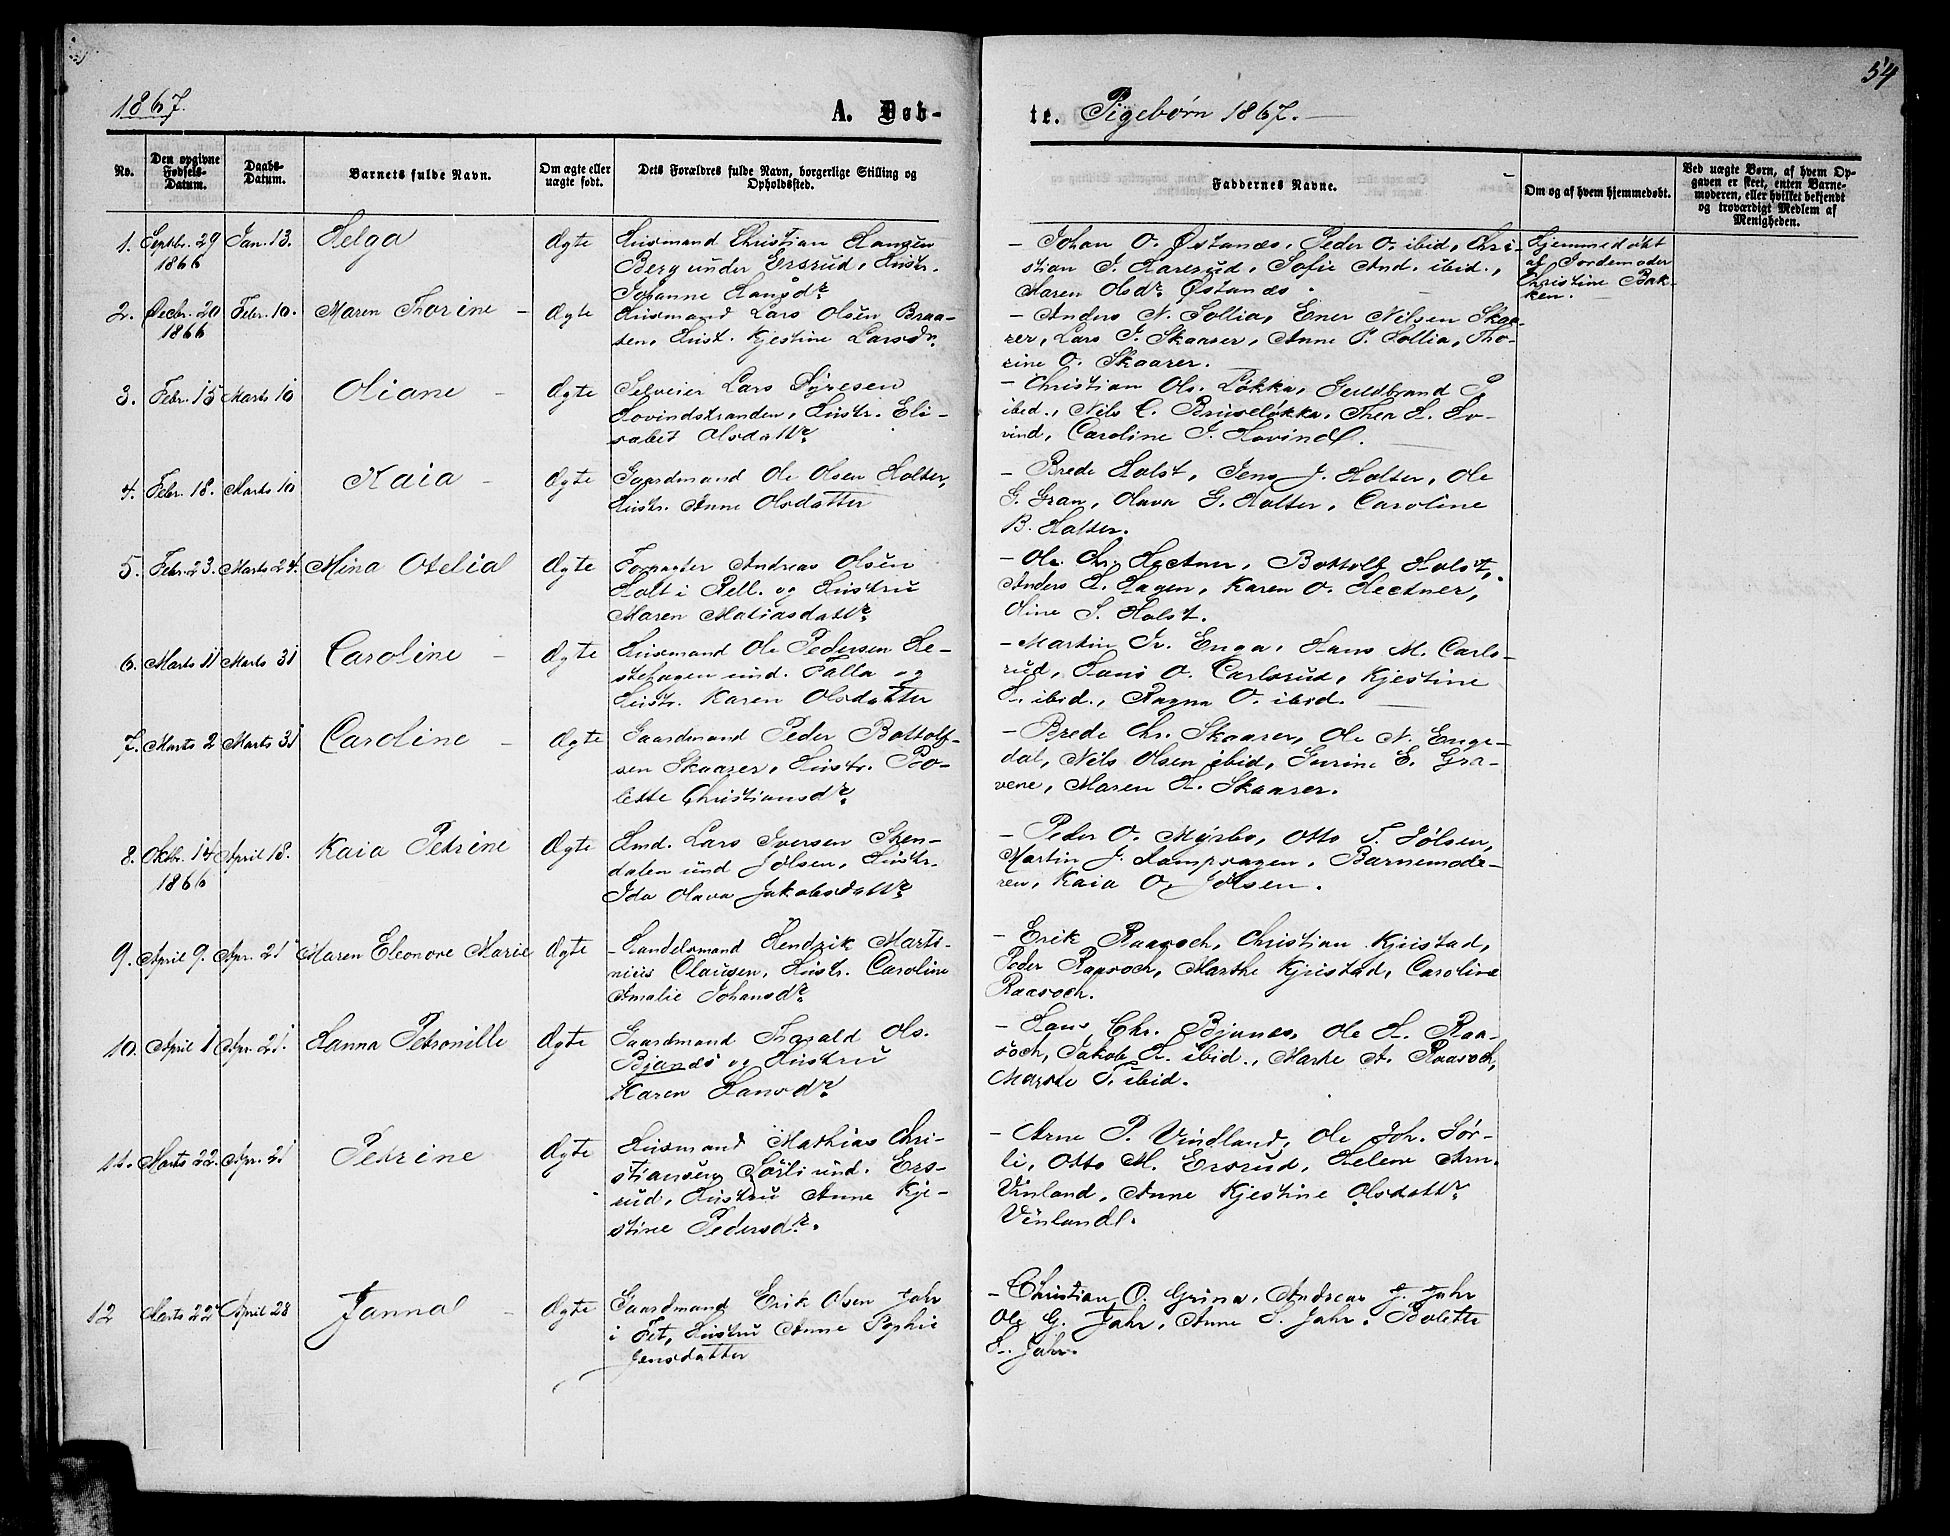 54
1867.
A. Døb-
te. Pigebørn 1867.
No.
Den opgivne Fødsels-Datum.
Daabs-Datum.
Barnets fulde Navn.
Om ægte eller uægte født.
Dets Forældres fulde Navn, borgerlige Stilling og Opholdssted.
Faddernes Navne.
Om og af hvem hjemmedøbt.
Ved uægte Børn, af hvem Op-
gaven er skeet, enten Barne-
moderen, eller hvilket bekjendt
og troværdigt Medlem af
Menigheden.
1. Septbr. 29 1866 Jan. 13. Helga Ægte
Huusmand Christian Hansen
Berg under Ersrud, Hustr.
Johanne Hansdr.
- Johan O. Østanes, Peder O. ibid, Chri-
stian J. Haresrud, Sofie And. ibid.,
Maren Olsdr. Østanes.
Hjemmedøbt
af Jordemoder
Christine Bak-
ken.
2. Decbr. 20 1866 Febr. 10. Maren Thorine - Ægte
Huusmand Lars Olsen Braa-
ten, Hust. Kjestine Larsdr.
- Anders N. Sollia, Ener Nilsen Skaa-
rer, Lars J. Skaarer, Anne P. Sollia, Tho-
rine O. Skaarer.
3. Febr. 15 Marts 10 Oliane - Ægte
Selveier Lars Syresen
Hovindstranden, Hustr. Eli-
sabet Olsdattr.
- Christian Ols. Løkka, Guldbrand P.
ibid., Nils C. Bruseløkka, Thea L. Ho-
vind, Caroline J. Hovind.
4. Febr. 18. Marts 10 Kaia - Ægte
Gaardmand Ole Olsen Holter,
Hustr. Anne Olsdatter
- Brede Holst, Jens J. Holter, Ole
G. Gran, Olava G. Holter, Caroline
B. Holter.
5. Febr. 23. Marts 24. Mina Otelia Ægte
Forpagter Andreas Olsen
Holt i Rell. og Hustru
Maren Matiasdattr.
- Ole Chr. Hectner, Bottolf Holst,
Anders L. Hagen, Karen O. Hectner,
Oline S. Holst.
6. Marts 11 Marts 31 Caroline - Ægte
Huusmand Ole Pedersen He-
stehagen und. Falla og
Hustr. Karen Olsdatter
- Martin Iv. Enga, Hans M. Carls-
rud, Hans O. Carlsrud, Kjestine
L. ibid., Ragna O. ibid.
7. Marts 2 Marts 31 Caroline - Ægte
Gaardmand Peder Bottolf-
sen Skaarer, Hustr. Bo-
lette Christiansdr.
- Brede Chr. Skaarer, Ole N. Enge-
dal, Nils Olsen ibid, Gurine E. Gra-
vene, Maren L. Skaarer.
8. Oktbr. 14 1866 April 18. Kaia Petrine Ægte
Hmd. Lars Iversen Sten-
dalen und Jølsen, Hustr.
Ida Olava Jakobsdattr.
- Peder O. Myrbo, Otto T. Jølsen,
Martin J. Kamphagen, Barnemode-
ren, Kaia O. Jølsen.
9. April 9. Apr. 21 Maren Eleonore Marie Ægte
- Handelsmand Hendrik Marti-
nius Clausen, Hustr. Caroline
Amalie Johansdr.
- Erik Raavoch, Christian Kjristad,
Peder Raavoch, Marthe Kjristad, Caroline
Raavoch.
10. April 1 Apr. 21. Hanna Petronille Ægte
Gaardmand Tharald Ols.
Bjanes og Hustru
Karen Hansdr.
- Hans Chr. Bjanes, Ole L. Raa-
voch, Jakob L. ibid., Marte A. Raavoch,
Marthe T. ibid.
11. Marts 22. Apr. 21 Petrine Ægte
Huusmand Mathias Chri-
stiansen Sørli und. Ers-
rud, Hustru Anne Kje-
stine Pedersdr.
- Arne P. Vindland, Ole Joh. Sør-
li, Otto M. Ersrud, Helene Arn.
Vinland, Anne Kjestine Olsdattr.
Vinland.
12 Marts 22 April 28 Janna - Ægte
Gaardmand Erik Olsen Jahr
i Fet, Hustru Anne Sophie
Jensdatter
- Christian O. Grina, Andreas J. Jahr
Ole G. Jahr, Anne S. Jahr, Bolette
E. Jahr.